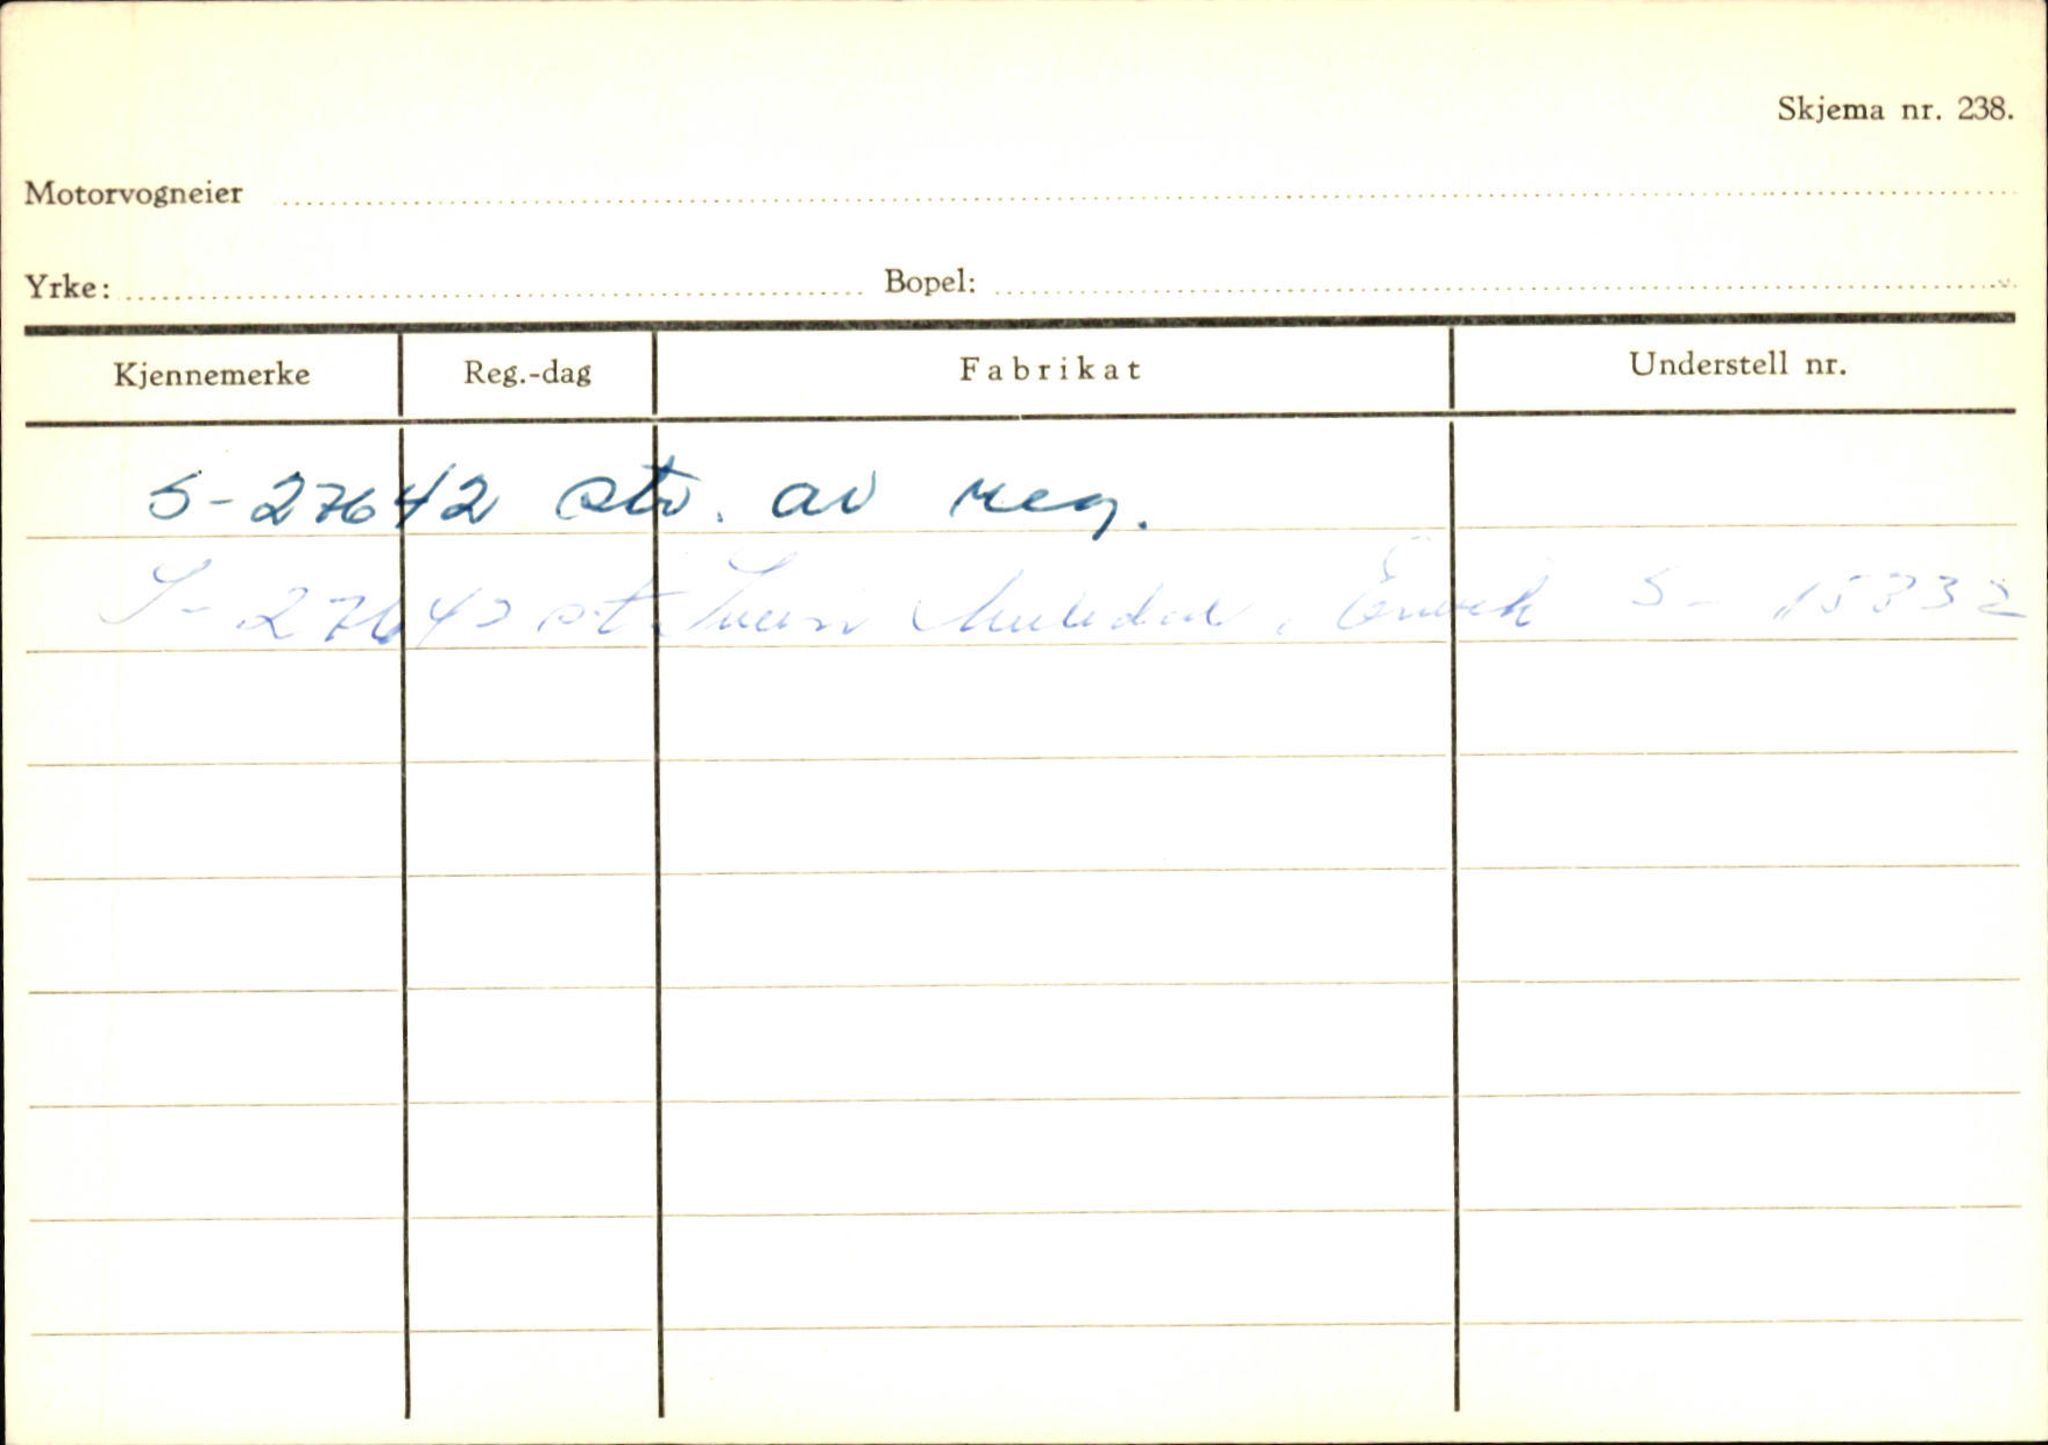 Skjema nr. 238.
Motorvogneier
Yrke: Bopel:
Kjennemerke Reg.-dag Fabrikat Understell nr.
S-27642 str. av reg.
S-27642 st. S-15332